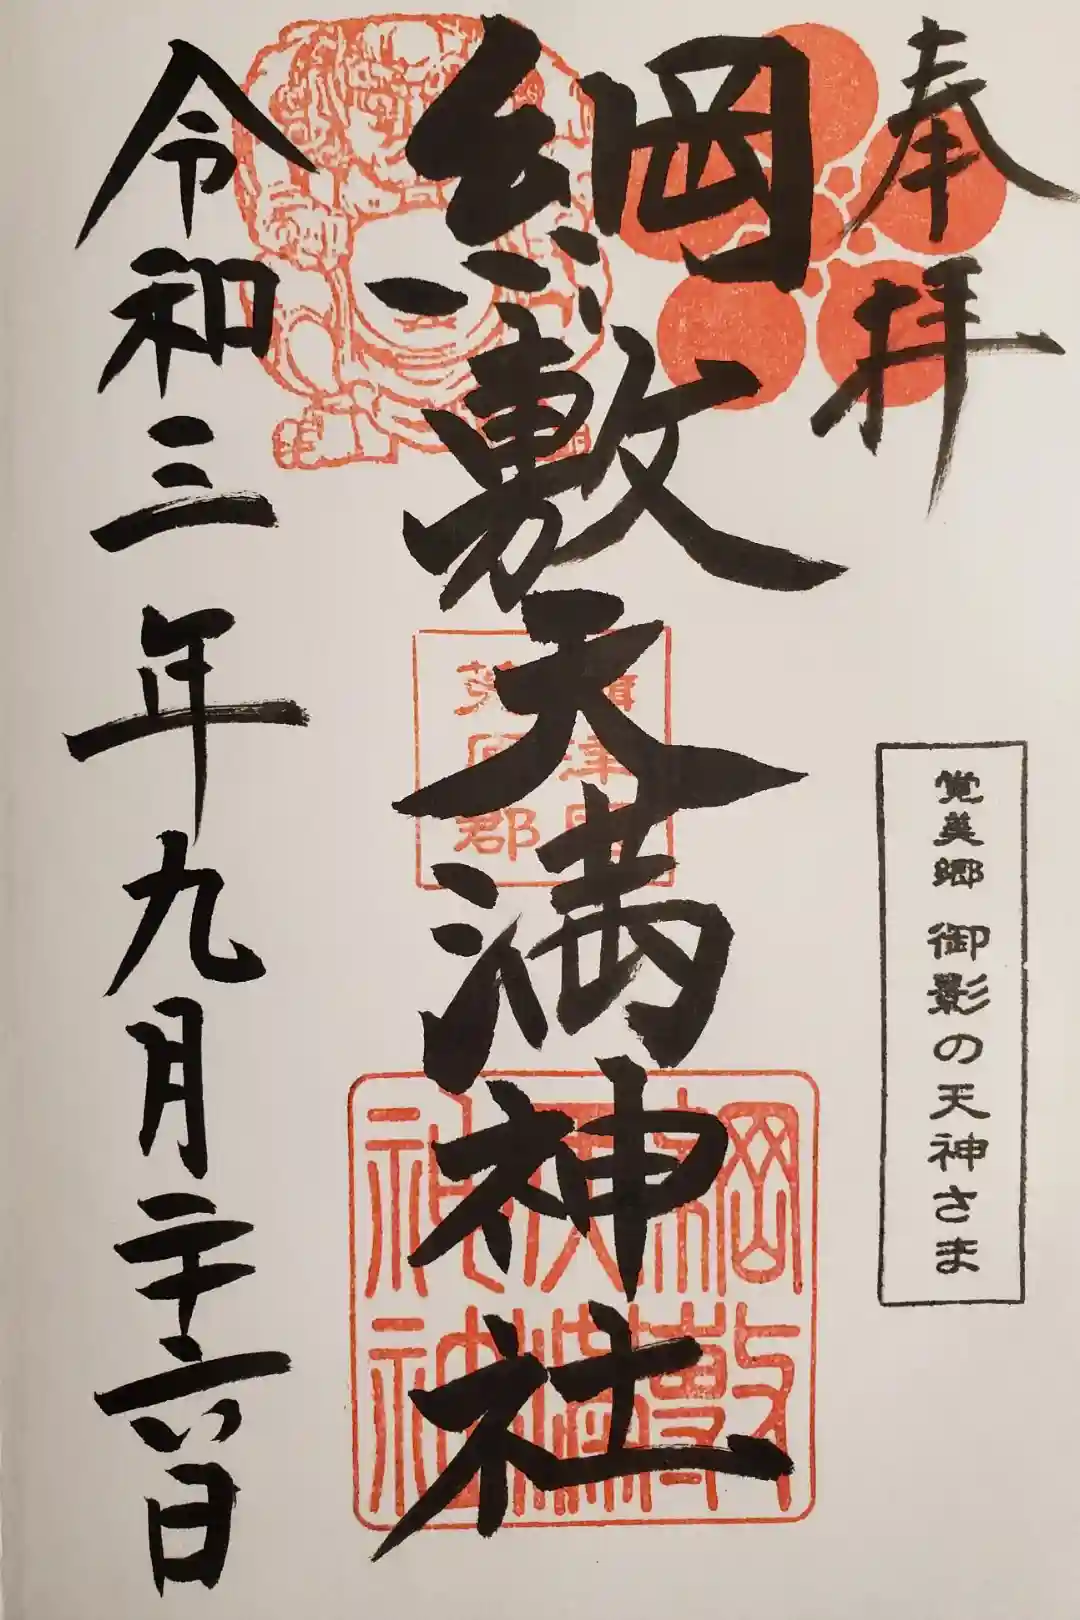 奉拝
覚美郷 御影の天神さま
綱敷天満神社
摂津国
菟原郡
綱敷
天満
神社
令和三年九月二十六日